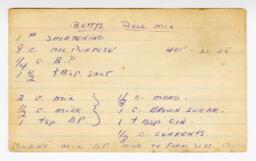 BETTYS ROLL MIX
1 # SHORTENING
9 C. ALL PURPOSE 400° - 20-25
1/4 C. B.P
1 1/2 TBSP. SALT
2 C. MIX 1/3 C. MARG.
1/2 C. MILK 1/2 C. BROWN SUGAR.
1 TSP BP 1 TBSP CIN.
1/2 C. CURRENTS.
COMBINE MIX BP MILK TO FORM